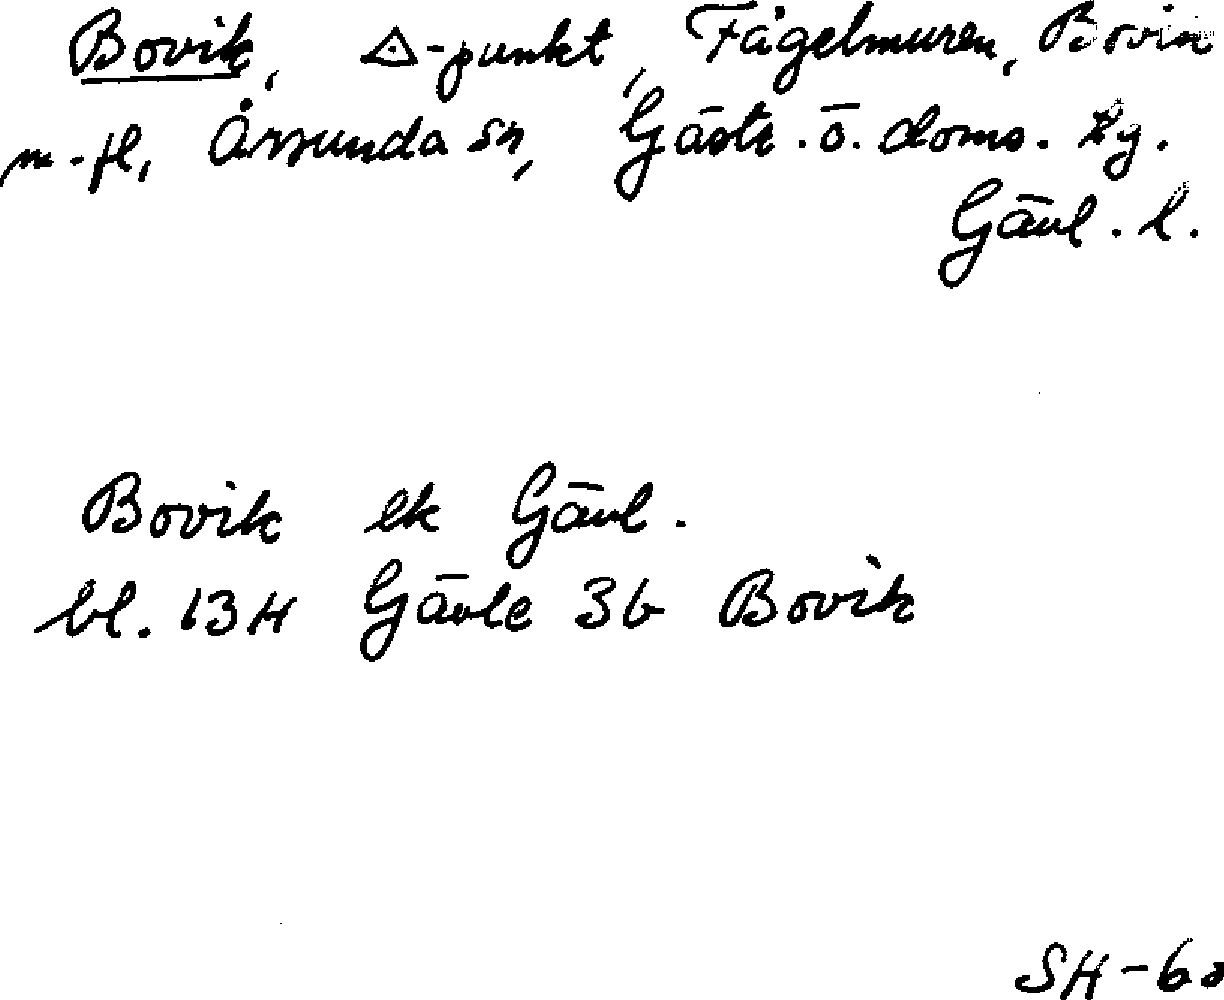 Bovik, △-punkt, Fågelmuren, Bovik
m.fl., Årsunda sn, Gästr. ö. doms. tg.
Gävl. l.
Bovik ek Gävl.
bl. 13H Gävle 3b Bovik
SH-60